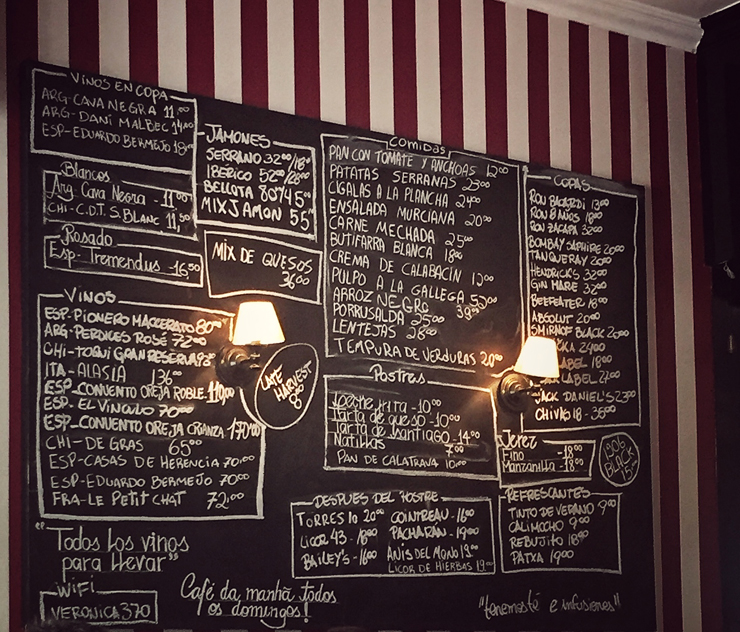 VINOS EN COPA
ARG-CAVA NEGRA 11.00
ARG-DANI MALBEC 14.00
ESP-EDUARDO BERMEJO 18.00
Blancos
Arg. Cava Negra - 11.00
CHI-C.D.T. S.BLANC 11,50
Rosado
Esp-Tremendus -16.50
VINOS
ESP-PIONERO MACCERATO 80.00
ARG-PERDICES ROSÉ 72.00
CHI-TOQUI GRAN RESERVA
ITA-ALASIA 136.00
ESP-CONVENTO OREJA ROBLE 110.00
ESP-EL VINCULO 70.00
ESP-CONVENTO OREJA CRIANZA 170.00
CHI-DE GRAS 65.00
ESP-CASAS DE HERENCIA 70.00
ESP-EDUARDO BERMEJO 70.00
FRA-LE PETIT CHAT 72.00
"Todos los vinos
para llevar"
WIFI
VERONICA370
JAMONES
SERRANO 32.00/18.00
IBERICO 52.00/28.00
BELLOTA 80.00/45.00
MIX JAMON 55.00
MIX DE QUESOS
36.00
LATE
HARVEST
8.00
Comidas
PAN CON TOMATE Y ANCHOAS 12.00
PATATAS SERRANAS 23.00
CIGALAS A LA PLANCHA 24.00
ENSALADA MURCIANA 20.00
CARNE MECHADA 25.00
BUTIFARRA BLANCA 18.00
CREMA DE CALABACÍN 12.00
PULPO A LA GALLEGA 52.00
ARROZ NEGRO 39.00
PORRUSALDA 25.00
LENTEJAS 26.00
TEMPURA DE VERDURAS 20.00
Postres
Leche frita -10.00
Tarta de queso -10.00
Tarta de Santiago -14.00
Natillas 7.00
PAN DE CALATRAVA 10.00
DESPUES DEL POSTRE
TORRES 10 20.00
LICOR 43 - 18.00
BAILEY'S -16.00
COINTREAU -16.00
PACHARAN -19.00
ANIS DEL MONO 19.00
LICOR DE HIERBAS 19.00
Café da manhã todos
os domingos!
COPAS
RON BACARDI 13.00
RON 8 AÑOS 18.00
RON ZACAPA 32.00
BOMBAY SAPHIRE 20.00
TANQUERAY 20.00
HENDRICK'S 32.00
GIN MARE 32.00
BEEFEATER 18.00
ABSOLUT 20.00
SMIRNOF BLACK 20.00
24.00
LABEL 18.00
LABEL 21.00
JACK DANIEL'S 23.00
CHIVAS 18 - 36.00
Jerez
Fino -18.00
Manzanilla -18.00
1906
BLACK
15.00
REFRESCANTES
TINTO DE VERANO 9.00
CALIMOCHO 9.00
REBUJITO 18.00
PATXA 19.00
"tenemos té e infusiones"